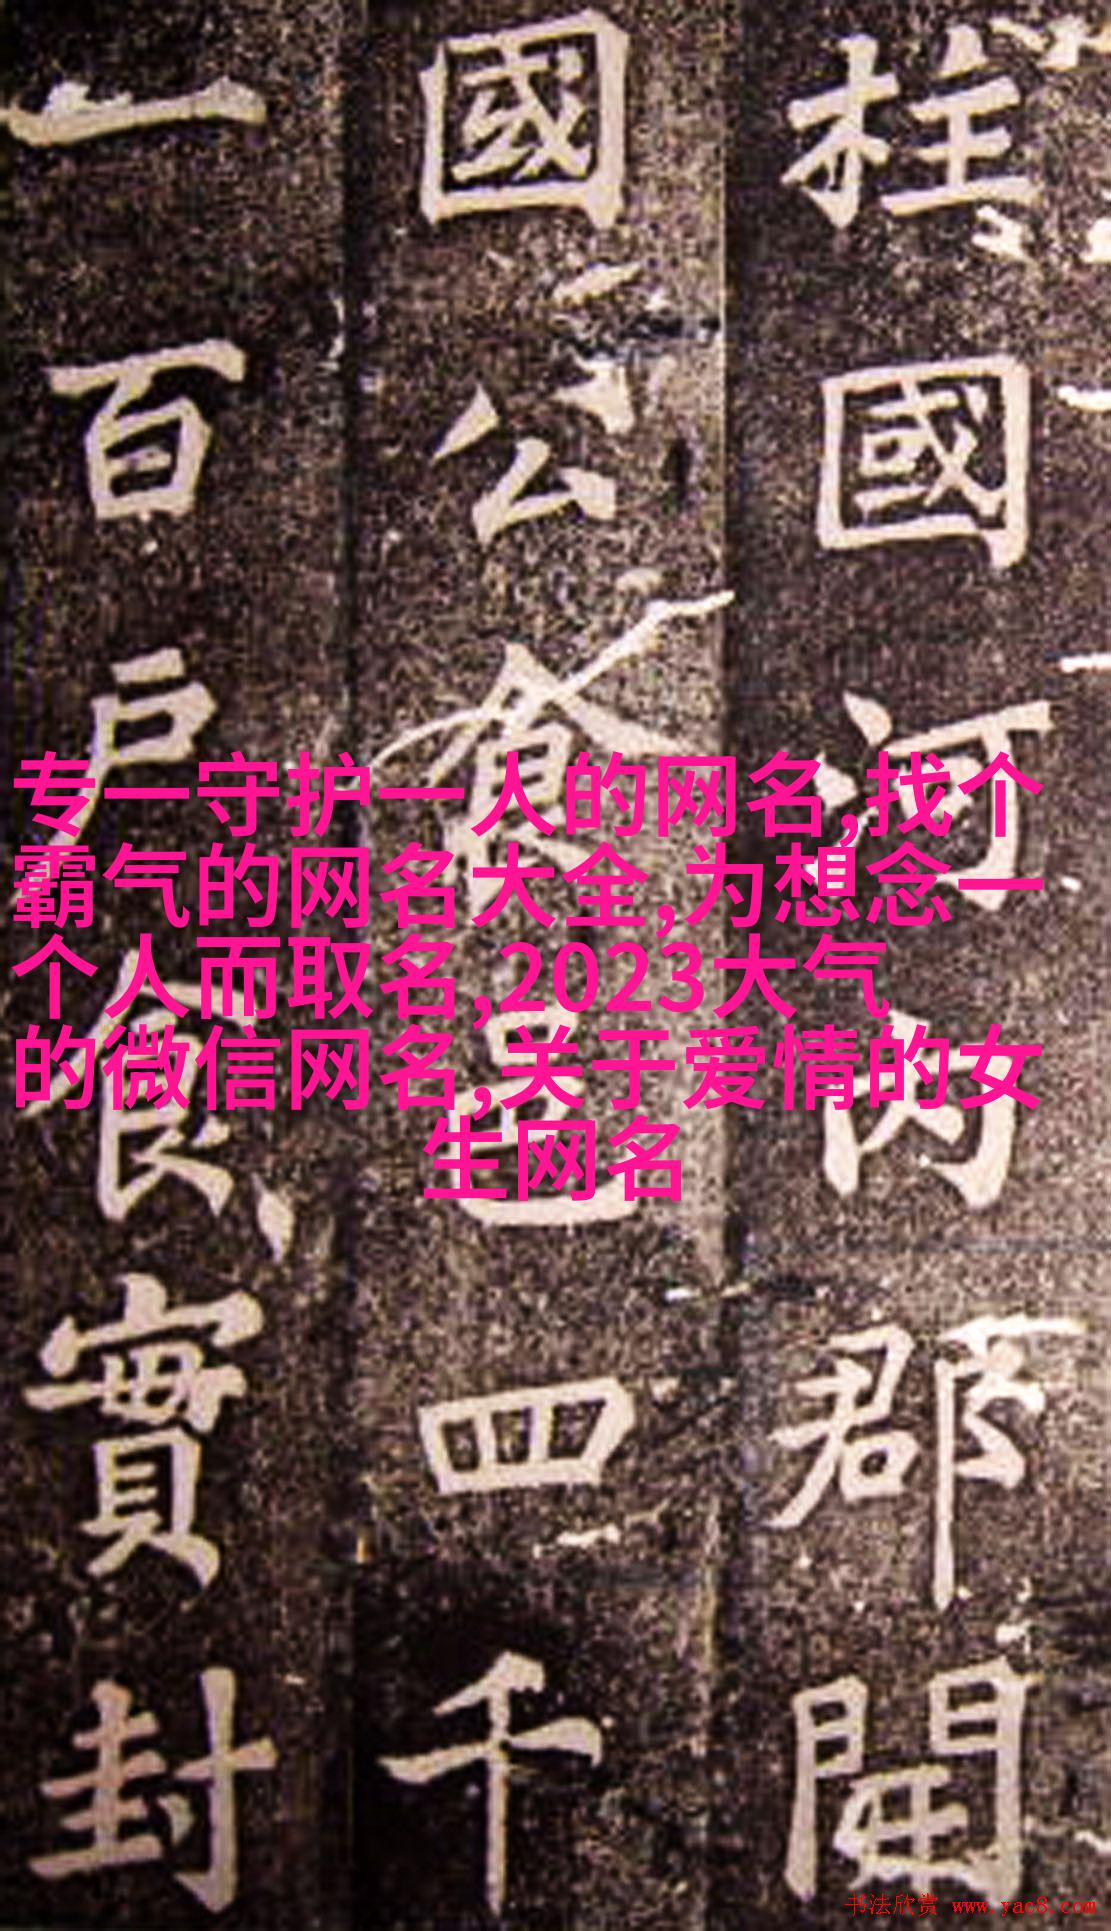 柱國河内郡開
國公食邑四千
一百戸食實封
专一守护一人的网名,找个
霸气的网名大全,为想念一
个人而取名,2023大气
的微信网名,关于爱情的女
生网名
书法欣赏 www.yac8.com